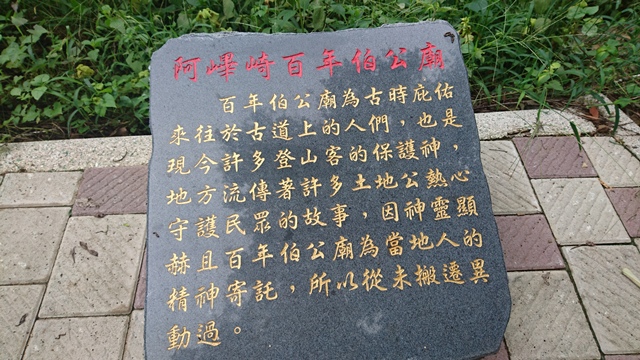 阿嗶崎百年伯公廟
百年伯公廟為古時庇佑
來往於古道上的人們，也是
現今許多登山客的保護神，
地方流傳著許多土地公熱心
守護民眾的故事，因神靈顯
赫且百年伯公廟為當地人的
精神寄託，所以從未搬遷異
動過。